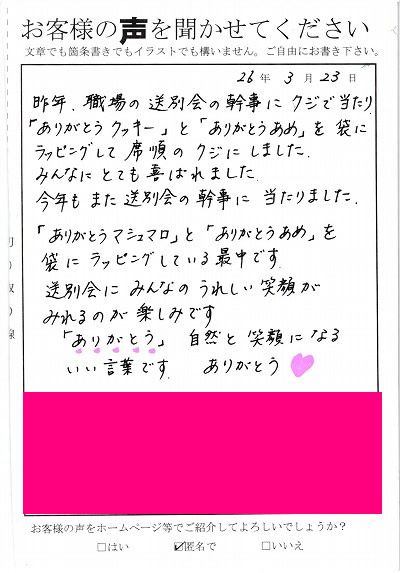 お客様の声を聞かせてください
文章でも箇条書きでもイラストでも構いません。ご自由にお書き下さい。
26年 3月 23日
昨年、職場の送別会の幹事にクジで当たり
「ありがとうクッキー」と「ありがとうあめ」を袋に
ラッピングして席順のクジにしました。
みんなにとても喜ばれました。
今年もまた送別会の幹事に当たりました。
「ありがとうマシュマロ」と「ありがとうあめ」を
袋にラッピングしている最中です
送別会にみんなのうれしい笑顔が
みれるのが楽しみです
「ありがとう」 自然と笑顔になる
いい言葉です。 ありがとう
お客様の声をホームページ等でご紹介してよろしいでしょうか？
□はい ☑匿名で □いいえ